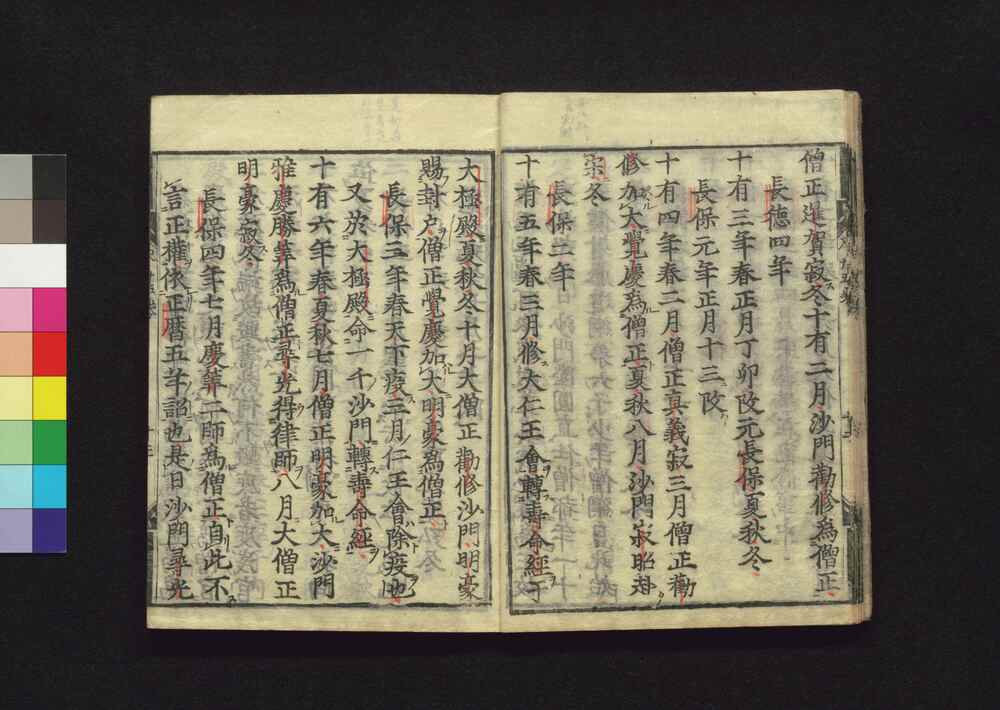 僧正暹賀寂冬十有二月沙門勸修爲僧正
長德四年
十有三年春正月丁卯改元長保夏秋冬
長保元年正月十三改
十有四年春二月僧正真義寂三月僧正勸
修加大覺慶爲僧正夏秋八月沙門寂昭
宋冬
長保二年
十有五年春三月修大仁王會轉壽命經于
大極殿夏秋冬十月大僧正勸修沙門明豪
賜封戶僧正覺慶加大明豪爲僧正
長保三年春天下疫三月仁王會除疫也
又於大極殿命一千沙門轉壽命經
十有六年春夏秋七月僧正明豪加大沙門
雅慶勝筭爲僧正尋光得律師八月大僧正
明豪寂冬
長保四年七月慶筭二師爲僧正自此不
言正權依正曆五年詔也是日沙門尋光